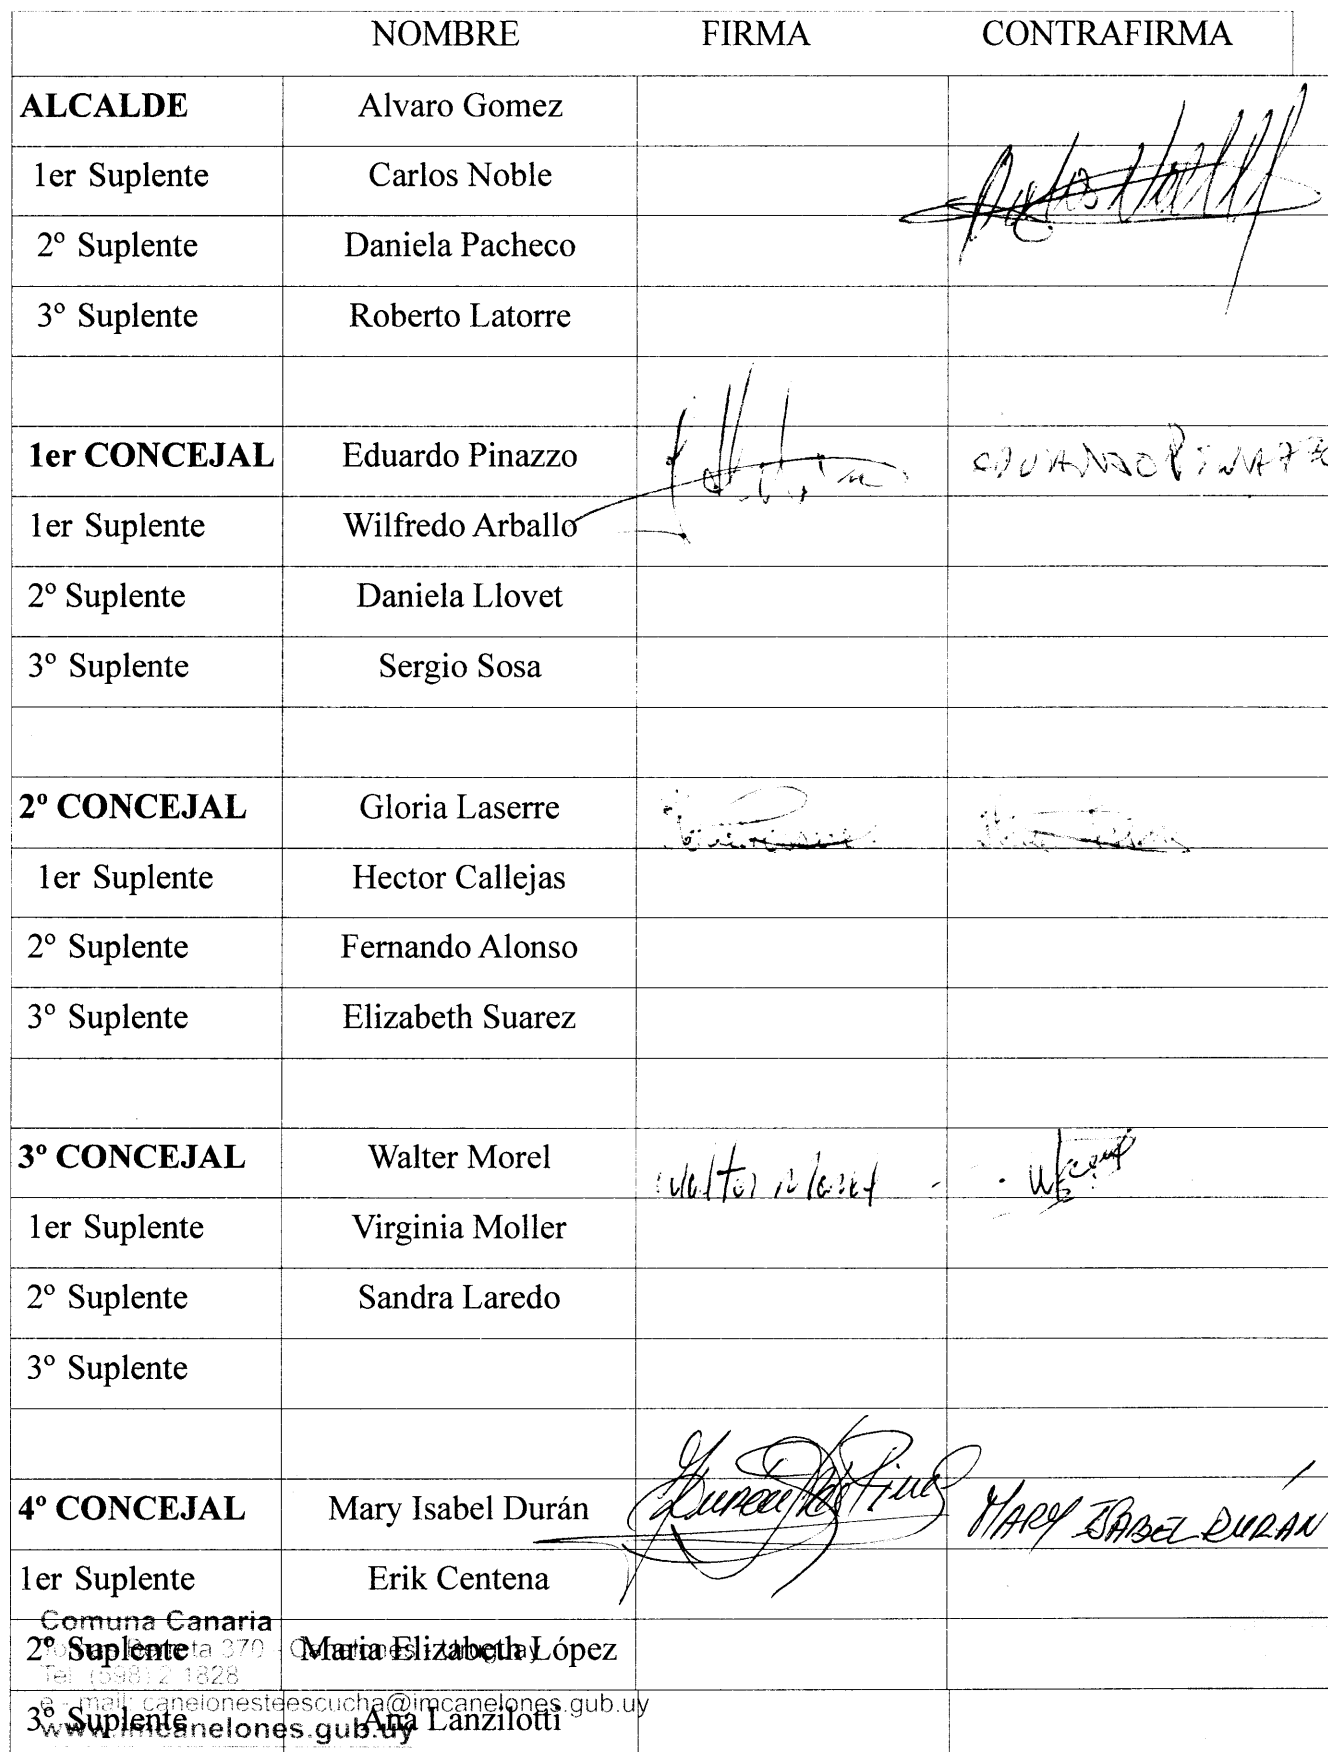 NOMBRE FIRMA CONTRAFIRMA
ALCALDE Alvaro Gomez
1er Suplente Carlos Noble Carlos Noble
2º Suplente Daniela Pacheco
3º Suplente Roberto Latorre
1er CONCEJAL Eduardo Pinazzo EDUARDO PINAZZO
1er Suplente Wilfredo Arballo
2º Suplente Daniela Llovet
3º Suplente Sergio Sosa
2º CONCEJAL Gloria Laserre
1er Suplente Hector Callejas
2º Suplente Fernando Alonso
3º Suplente Elizabeth Suarez
3º CONCEJAL Walter Morel Walter Morel
1er Suplente Virginia Moller
2º Suplente Sandra Laredo
3º Suplente
4º CONCEJAL Mary Isabel Durán MARY ISABEL DURÁN
1er Suplente Erik Centena
Comuna Canaria
2º Suplente Maria Elizabeth López
370 - Canelones - Uruguay
Tel. (598) 2 1828
e - mail: canelonesteescucha@imcanelones.gub.uy
3º Suplente Ana Lanzilotti
www.imcanelones.gub.uy